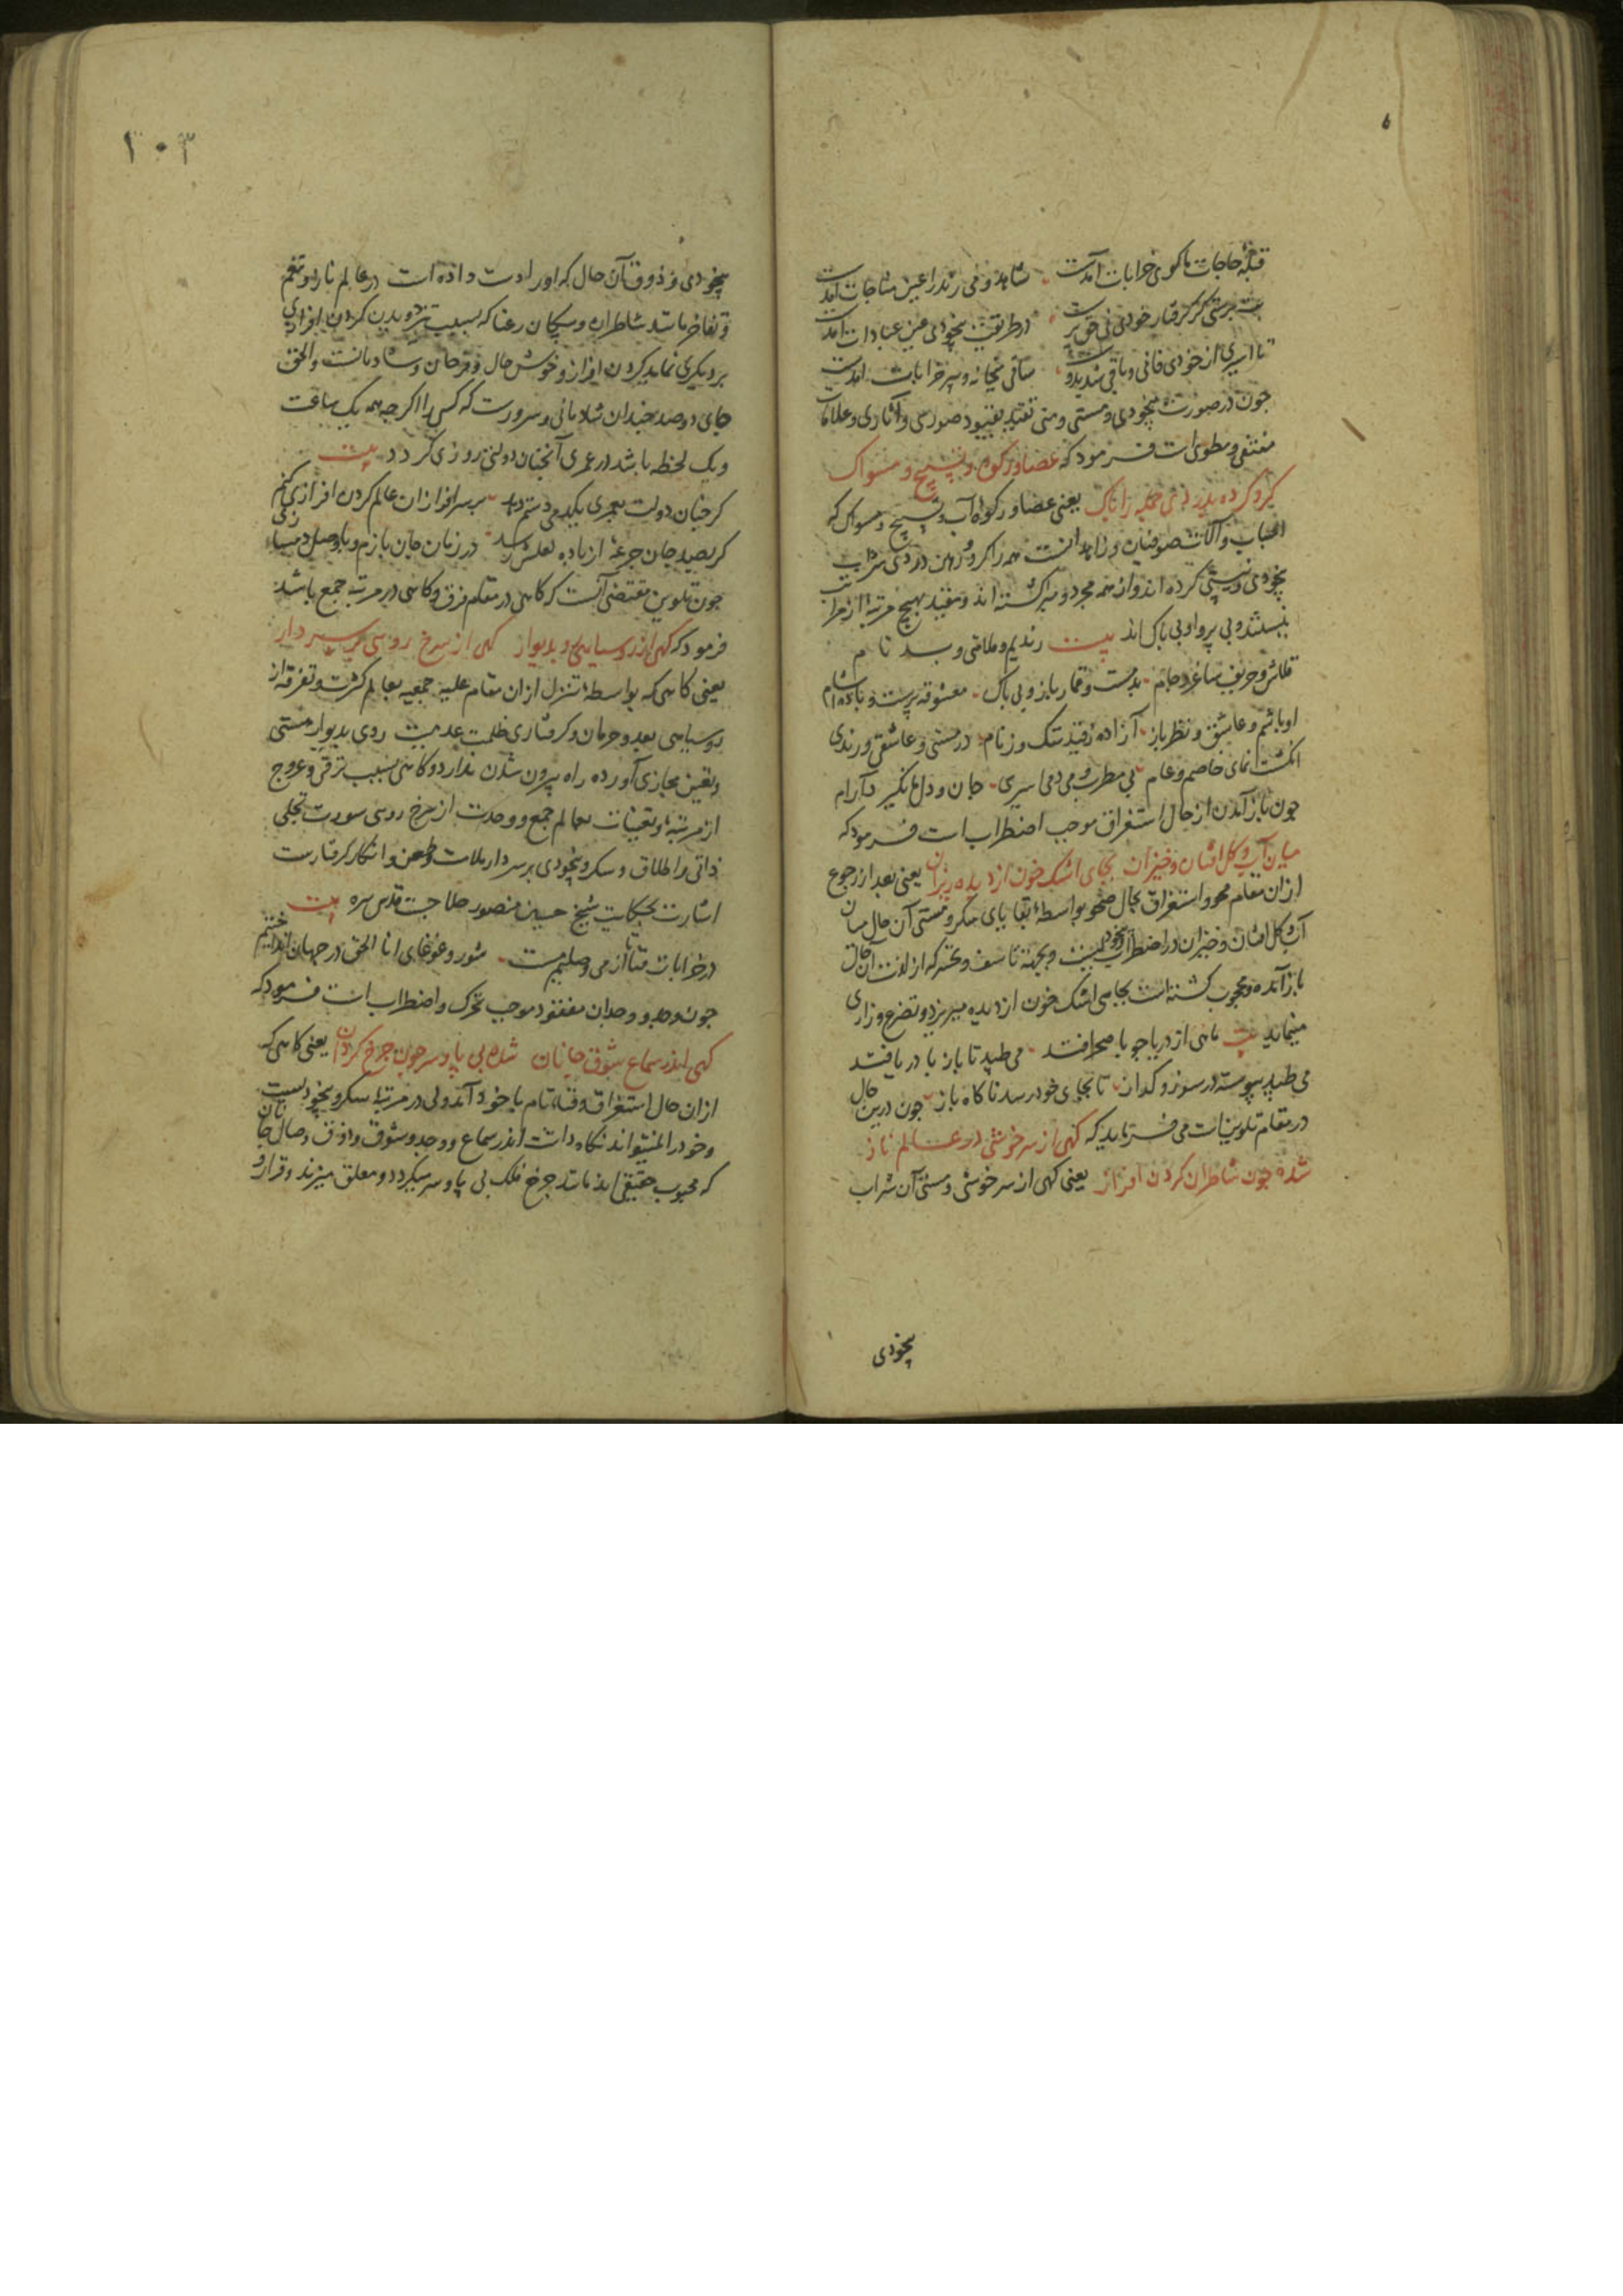 قبلهٔ حاجات ما کوی خرابات آمدست شاهد و می رند را عین مناجات آمدست
بت پرستی گر گرفتار خودی نی حق پرست در طریقت بیخودی عین عبادات آمدست
تا اسیری از خودی فانی و باقی شد بدوست ساقی میخانه و پیر خرابات آمدست
چون در صورت بیخودی و مستی و منی تقید بقیود صوری و آثاری و علامات
منتفی و مطوی است فرمود که عصا و رکوه و تسبیح و مسواک
گرو کرده بدردی جمله را پاک یعنی عصا و رکوهٔ آب و تسبیح و مسواک که
اسباب و آلات صوفیان و زاهدانست همه را گرو و رهن دردی شراب
بیخودی و نیستی کرده‌اند و از همه مجرد و مبرا گشته‌اند و مقید بهیچ مرتبهٔ از مراتب
نیستند و بی پروا و بی باک اند بیت رندیم و ملامتی و بد نام
قلاش و حریف ساغر و جام بدمست و قمار باز و بی باک معشوقه پرست و باده آشام
اوباشم و عاشق و نظرباز آزاده ز قید ننگ و ز نام در مستی و عاشقی و رندی
انگشت نمای خاصم و عام بی مطرب و می دمی اسیری جان و دل ما نگیرد آرام
چون باز آمدن از حال استغراق موجب اضطراب است فرمود که
میان آب و گل افتان و خیزان بجای اشک خون از دیده ریزان یعنی بعد از رجوع
از ان مقام محو و استغراق بحال صحو بواسطهٔ بقایای سکر و مستی آن حال میان
آب و گل افتان و خیزان در اضطراب بیخودیست و بجهة تاسف و تحسر که از لذت آن حال
باز آمده و محجوب گشته است بجای اشک خون از دیده میریزد و تضرع و زاری
مینماید بیت ماهی از دریا چو با صحرا فتد می طپد تا باز با دریا فتد
می طپد پیوسته در سوز و گداز تا بجای خود رسد ناگاه باز چون درین حال
در مقام تلوین است می فرماید که گهی از سر خوشی در عالم ناز
شده چون شاطران گردن افراز یعنی گهی از سر خوشی و مستی آن شراب
بیخودی
۱۰۳
بیخودی و ذوق آن حال که او را دست داده است در عالم ناز و تنعم
و تفاخر مانند شاطران و پیکان رعنا که بسبب تیز دویدن گردن افرازی
بر دیگری نماید گردن افراز و خوش حال و فرحان و شادمانست والحق
جای دو صد چندان شادمانی و سرورست که کسی را اگر چه همه یک ساعت
و یک لحظه باشد در عمری آنچنان دولتی روزی گردد بیت
گر چنان دولت بعمری یکدمی دستم دهد بر سرافرازان عالم گردن افرازی کنم
گر بصد جان جرعهٔ از باده لعلش رسد در زمان جان بازم و با وصل دمسازی کنم
چون تلوین مقتضی آنست که گاهی در مقام فرق و گاهی در مرتبه جمع باشد
فرمود که گهی از رو سیاهی رو بدیوار گهی از سرخ رویی بر سر دار
یعنی گاهی که بواسطهٔ تنزل از ان مقام علیه جمعیه بعالم کثرت و تفرقه از
رو سیاهی بعد و حرمان و گرفتاری ظلمت عدمیت روی بدیوار هستی
و تعین مجازی آورده راه بیرون شدن ندارد و گاهی بسبب ترقی و عروج
از مرتبهٔ تعینات بعالم جمع و وحدت از سرخ رویی سورت تجلی
ذاتی و اطلاق و سکر و بیخودی بر سر دار ملامت و طعن و انکار گرفتارست
اشارت بحکایت شیخ حسین منصور حلاجست قدس سره بیت
در خرابات فنا تا از می وصلیم مست شور و غوغای انا الحق در جهان انداختیم
چون وجد و وجدان مفقود موجب تحرک و اضطراب است فرمود که
گهی اندر سماع شوق جانان شده بی پا و سر چون چرخ گردان یعنی گاهی که
از ان حال استغراق و فنای تام با خود آمد ولی در مرتبهٔ سکر و بیخودیست
و خود را نمیتواند نگاه داشت اندر سماع و وجد و شوق و ذوق وصال جانان
که محبوب حقیقی اند مانند چرخ فلک بی پا و سر میگردد و معلق میزند و قرار و